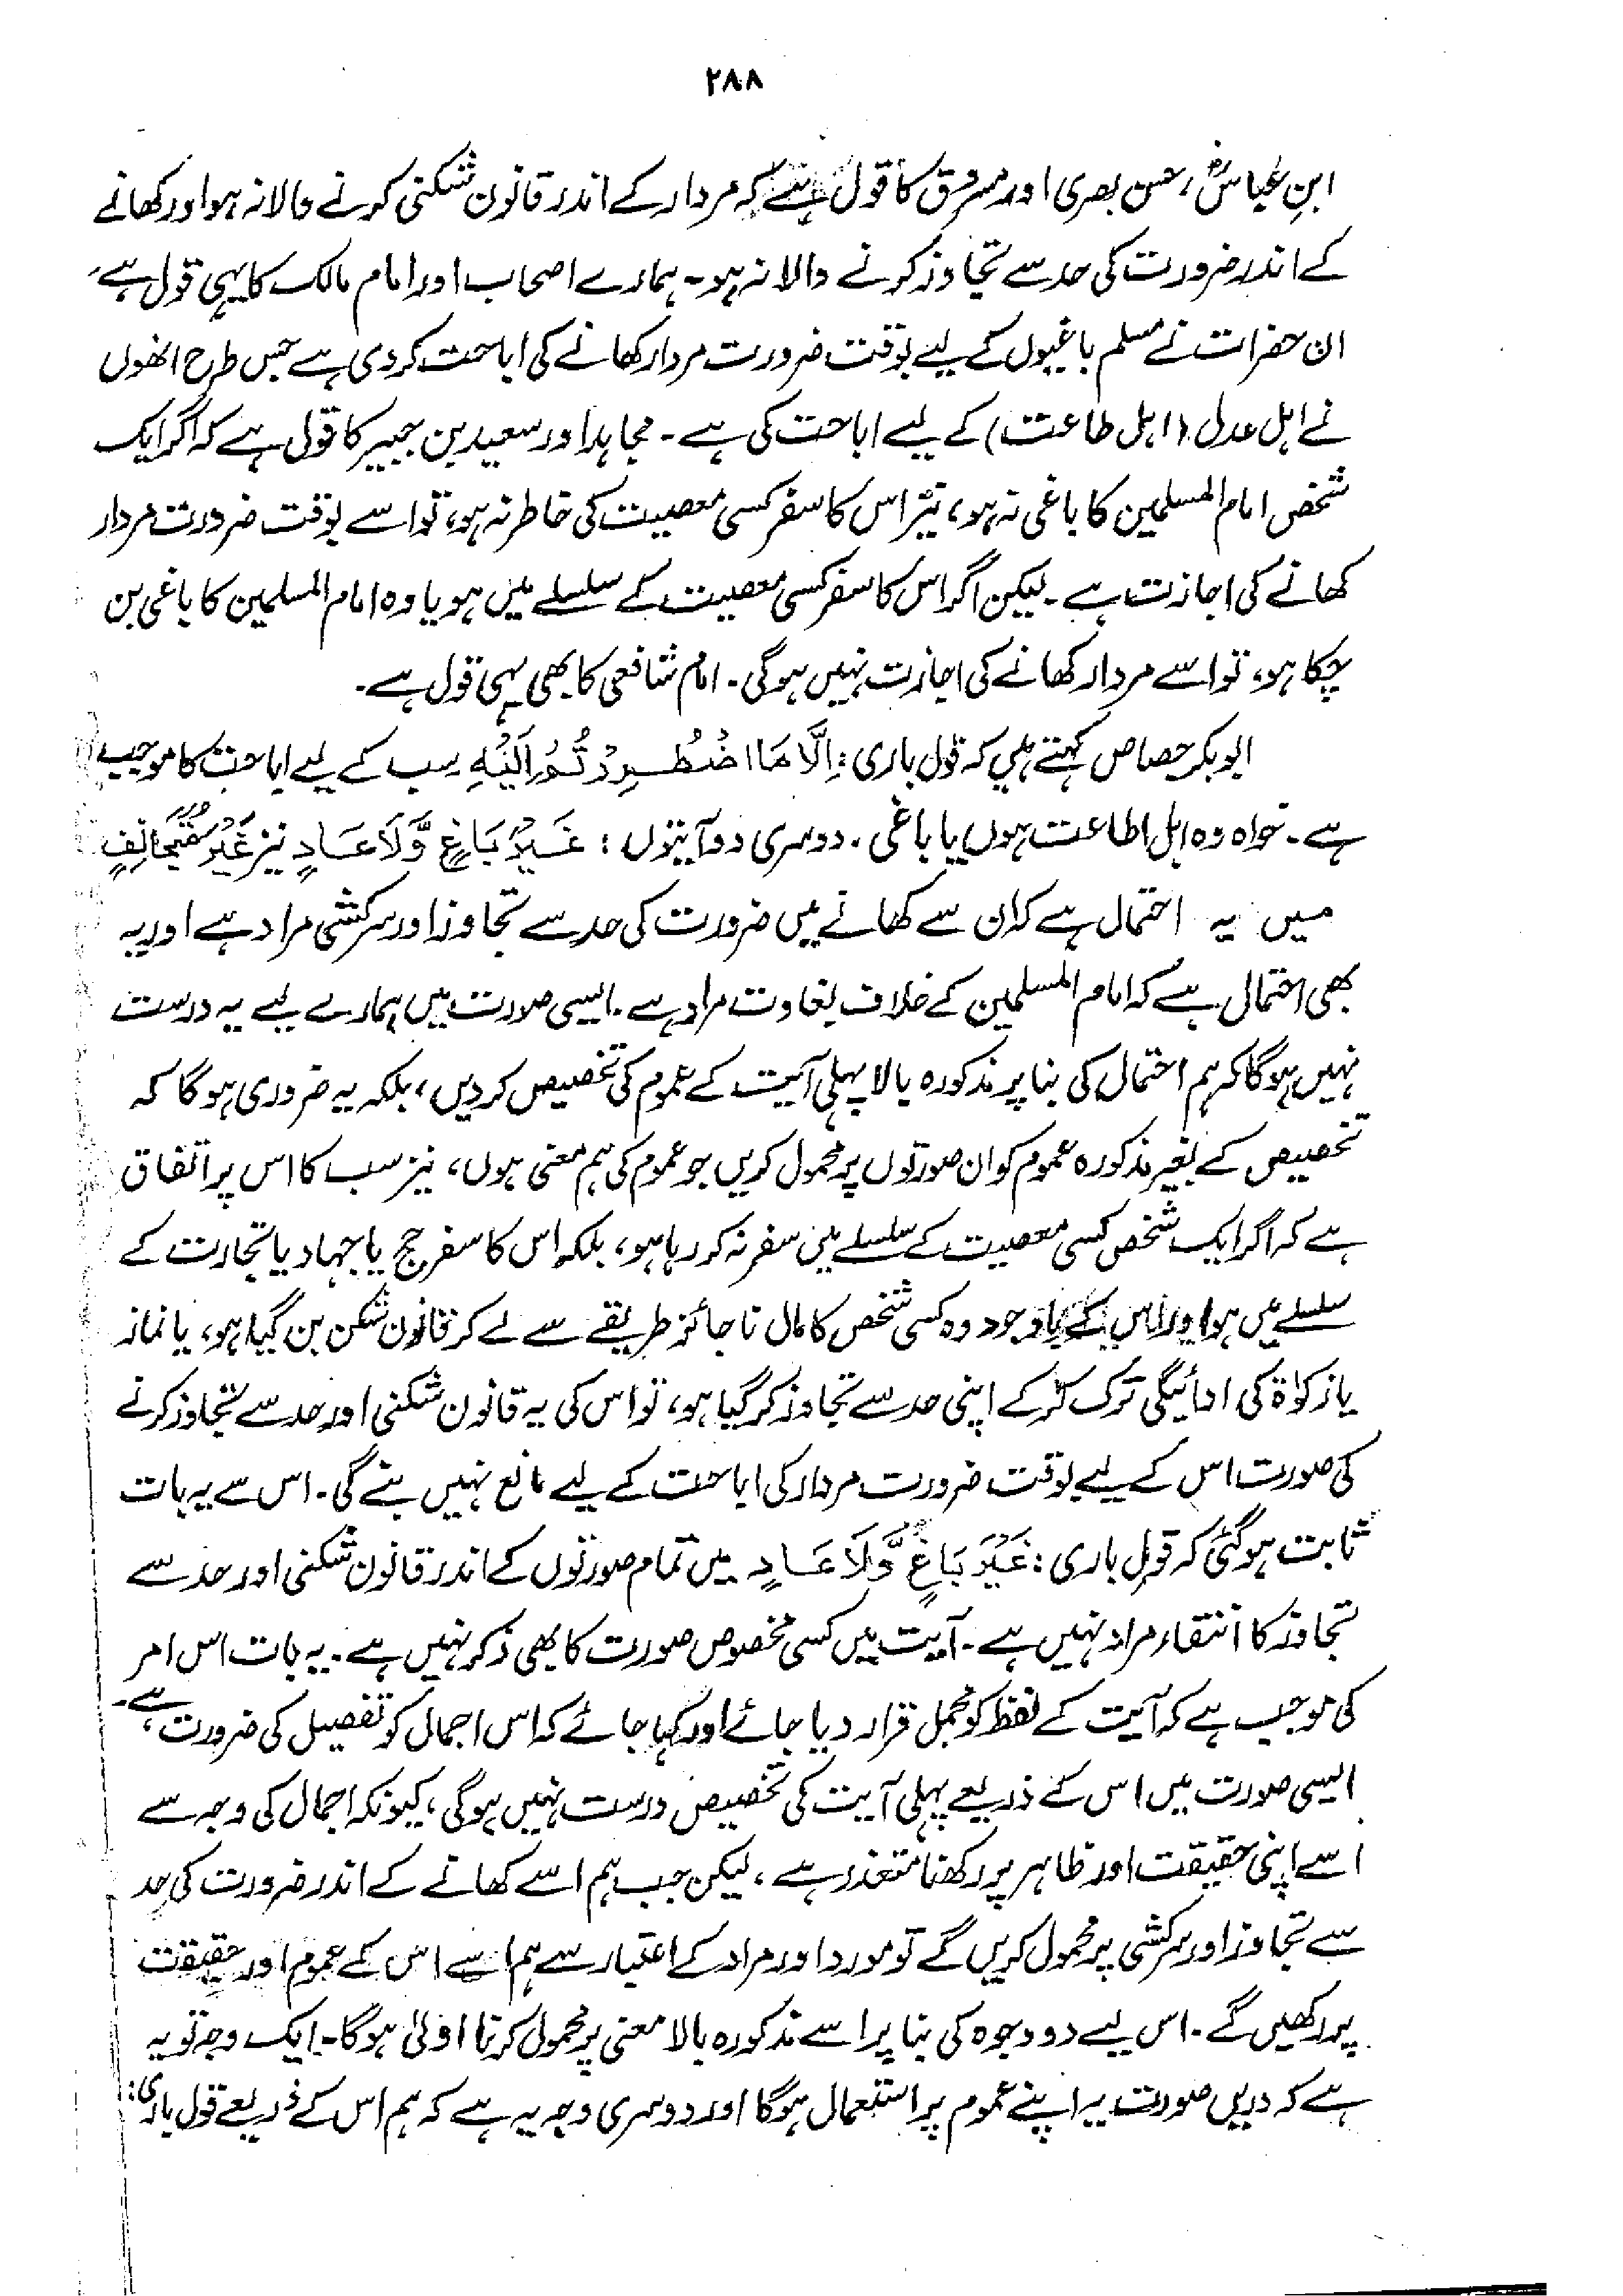 ۲۸۸
ابنِ عباسؓ، حسن بصری اور مسروق کا قول ہے کہ مردار کے اندر قانون شکنی کرنے والا نہ ہو اور کھانے
کے اندر ضرورت کی حد سے تجاوز کرنے والا نہ ہو۔ ہمارے اصحاب اور امام مالک کا یہی قول ہے،
ان حضرات نے مسلم باغیوں کے لیے بوقت ضرورت مردار کھانے کی اباحت کر دی ہے جس طرح انھوں
نے اہل عدل (اہل طاعت) کے لیے اباحت کی ہے۔ مجاہد اور سعید بن جبیر کا قول ہے کہ اگر ایک
شخص امام المسلمین کا باغی نہ ہو، نیز اس کا سفر کسی معصیت کی خاطر نہ ہو، تو اسے بوقت ضرورت مردار
کھانے کی اجازت ہے۔ لیکن اگر اس کا سفر کسی معصیت کے سلسلے میں ہو یا وہ امام المسلمین کا باغی بن
چکا ہو، تو اسے مردار کھانے کی اجازت نہیں ہوگی۔ امام شافعی کا بھی یہی قول ہے۔
ابو بکر جصاص کہتے ہیں کہ قول باری: اِلَّا مَا اضْطُرِرْتُمْ اِلَيْهِ سب کے لیے اباحت کا موجب
ہے۔ خواہ وہ اہل اطاعت ہوں یا باغی۔ دوسری دو آیتوں: غَيْرَ بَاغٍ وَّلَا عَادٍ نیز غَيْرَ مُتَجَانِفٍ
میں یہ احتمال ہے کہ ان سے کھانے میں ضرورت کی حد سے تجاوز اور سرکشی مراد ہے اور یہ
بھی احتمال ہے کہ امام المسلمین کے خلاف بغاوت مراد ہے۔ ایسی صورت میں ہمارے لیے یہ درست
نہیں ہوگا کہ ہم احتمال کی بنا پر مذکورہ بالا پہلی آیت کے عموم کی تخصیص کر دیں، بلکہ یہ ضروری ہوگا کہ
تخصیص کے بغیر مذکورہ عموم کو ان صورتوں پر محمول کریں جو عموم کی ہم معنی ہوں، نیز سب کا اس پر اتفاق
ہے کہ اگر ایک شخص کسی معصیت کے سلسلے میں سفر نہ کر رہا ہو، بلکہ اس کا سفر حج یا جہاد یا تجارت کے
سلسلے میں ہو اور اس کے باوجود وہ کسی شخص کا مال ناجائز طریقے سے لے کر قانون شکن بن گیا ہو، یا نماز
یا زکوٰۃ کی ادائیگی ترک کر کے اپنی حد سے تجاوز کر گیا ہو، تو اس کی یہ قانون شکنی اور حد سے تجاوز کرنے
کی صورت اس کے لیے بوقت ضرورت مردار کی اباحت کے لیے مانع نہیں بنے گی۔ اس سے یہ بات
ثابت ہو گئی کہ قول باری: غَيْرَ بَاغٍ وَّلَا عَادٍ میں تمام صورتوں کے اندر قانون شکنی اور حد سے
تجاوز کا انتفاء مراد نہیں ہے۔ آیت میں کسی مخصوص صورت کا بھی ذکر نہیں ہے۔ یہ بات اس امر
کی موجب ہے کہ آیت کے لفظ کو مجمل قرار دیا جائے اور کہا جائے کہ اس اجمال کو تفصیل کی ضرورت ہے۔
ایسی صورت میں اس کے ذریعے پہلی آیت کی تخصیص درست نہیں ہوگی، کیونکہ اجمال کی وجہ سے
اسے اپنی حقیقت اور ظاہر پر رکھنا متعذر ہے، لیکن جب ہم اسے کھانے کے اندر ضرورت کی حد
سے تجاوز اور سرکشی پر محمول کریں گے تو مورد اور مراد کے اعتبار سے ہم اسے اس کے عموم اور حقیقت
پر رکھیں گے۔ اس لیے دو وجوہ کی بنا پر اسے مذکورہ بالا معنی پر محمول کرنا اولیٰ ہوگا۔ ایک وجہ تو یہ
ہے کہ دریں صورت یہ اپنے عموم پر استعمال ہوگا اور دوسری وجہ یہ ہے کہ ہم اس کے ذریعے قول باری: